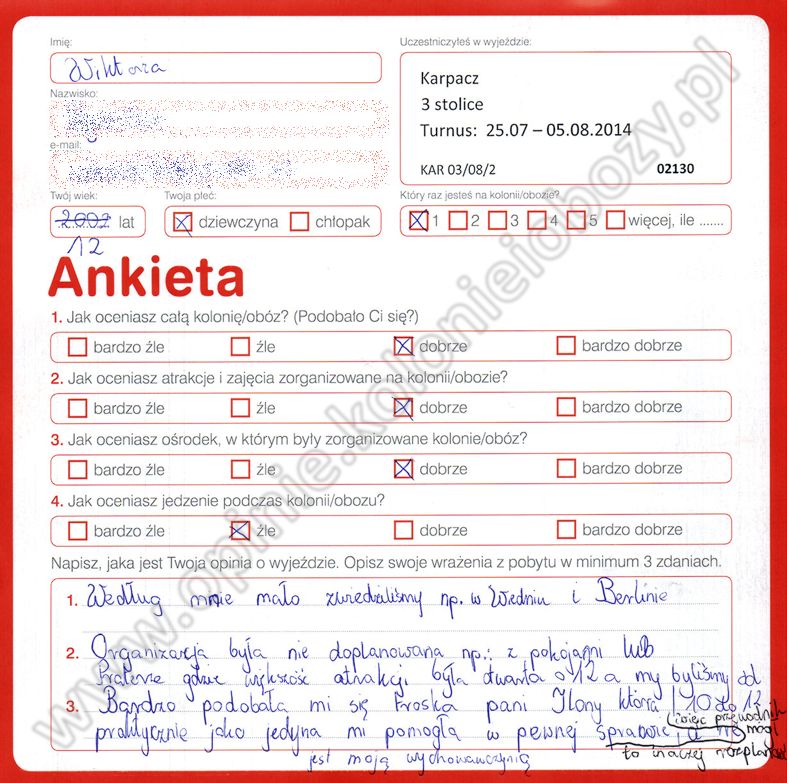 Imię:
Wiktoria
Uczestniczyłeś w wyjeździe:
Karpacz
3 stolice
Turnus: 25.07 – 05.08.2014
KAR 03/08/2 02130
Nazwisko:
e-mail:
Twój wiek: Twoja płeć: Który raz jesteś na kolonii/obozie?
2002 lat dziewczyna chłopak 1 2 3 4 5 więcej, ile .......
12
Ankieta
1. Jak oceniasz całą kolonię/obóz? (Podobało Ci się?)
bardzo źle źle dobrze bardzo dobrze
2. Jak oceniasz atrakcje i zajęcia zorganizowane na kolonii/obozie?
bardzo źle źle dobrze bardzo dobrze
3. Jak oceniasz ośrodek, w którym były zorganizowane kolonie/obóz?
bardzo źle źle dobrze bardzo dobrze
4. Jak oceniasz jedzenie podczas kolonii/obozu?
bardzo źle źle dobrze bardzo dobrze
Napisz, jaka jest Twoja opinia o wyjeździe. Opisz swoje wrażenia z pobytu w minimum 3 zdaniach.
1. Według mnie mało zwiedziliśmy np. w Wiedniu i Berlinie
2. Organizacja była nie doplanowana np.: z pokojami lub
Praterze gdzie większość atrakcji była otwarta o 12 a my byliśmy od
3. Bardzo podobała mi się troska pani Ilony która 10 do 12
praktycznie jako jedyna mi pomogła w pewnej sprawie, a nie
więc przewodnik
mógł
to inaczej rozplanować
jest moją wychowawczynią
www.opinie.kolonieiobozy.pl